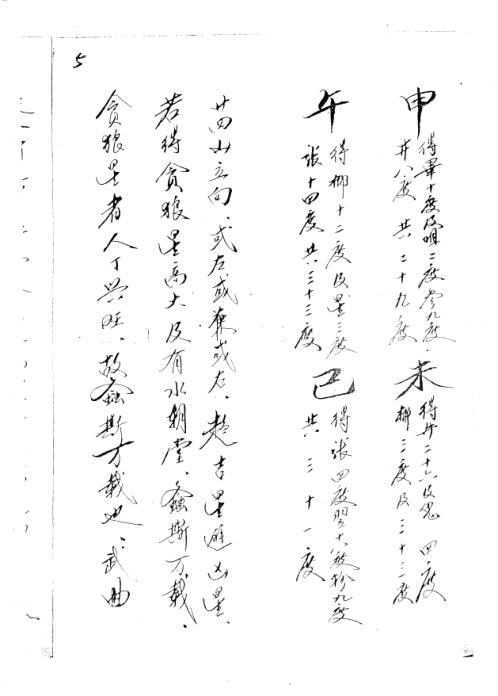 5
申 得畢十度及嘴二度參九度.
井八度 共二十九度
未 得井二十六及鬼四度
柳三度及三十三度
午 得柳十二度及星三度
張十四度共三十三度
己 得張四度翌十八度軫九度
共三十一度
廿四山立向、或左或兼或右、趋吉星避凶星、
若得貪狼星高大及有水朝堂、螽斯万载、
貪狼星者人丁兴旺、故螽斯万载也、武曲